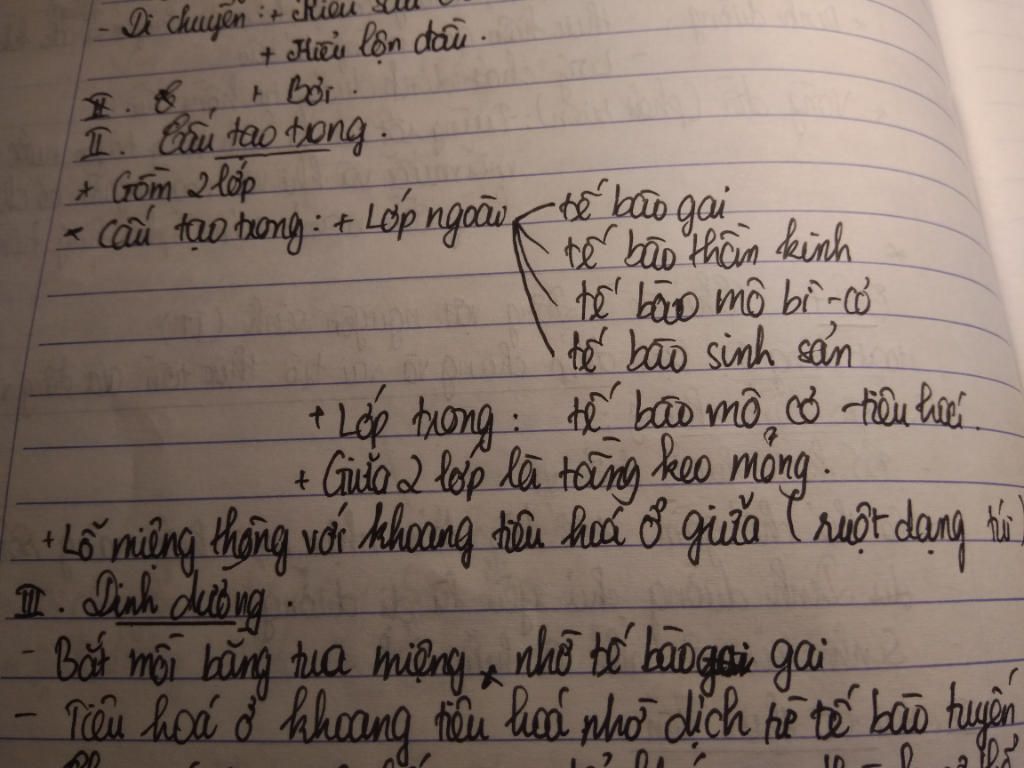 - Di chuyển : + Kiểu sâu
+ Kiểu lộn đầu .
II . + Bơi .
II . Cấu tạo trong .
+ Gồm 2 lớp
* Cấu tạo trong : + Lớp ngoài tế bào gai
tế bào thần kinh
tế bào mô bì - cơ
tế bào sinh sản
+ Lớp trong : tế bào mô cơ - tiêu hoá .
+ Giữa 2 lớp là tầng keo mỏng .
+ Lỗ miệng thông với khoang tiêu hoá ở giữa ( ruột dạng túi )
III . Dinh dưỡng .
- Bắt mồi bằng tua miệng , nhờ tế bào gai
- Tiêu hoá ở khoang tiêu hoá nhờ dịch từ tế bào tuyến